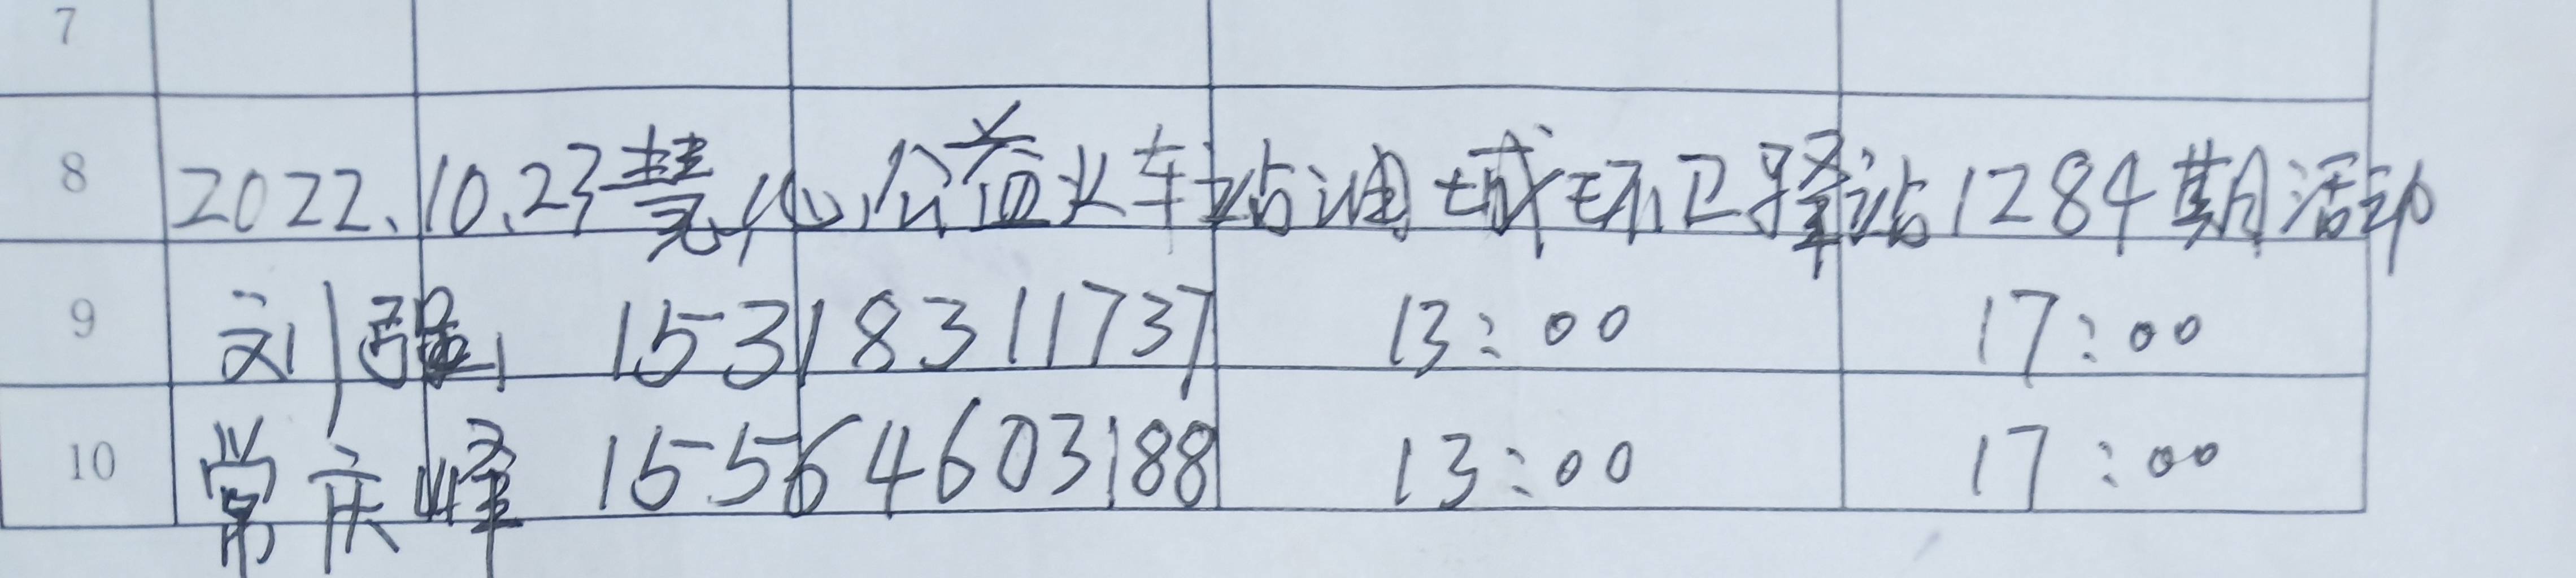 7
8 2022.10.23慧心公益火车站油城环卫驿站1284期活动
9 刘强 15318311737 13:00 17:00
10 常庆峰 15564603188 13:00 17:00